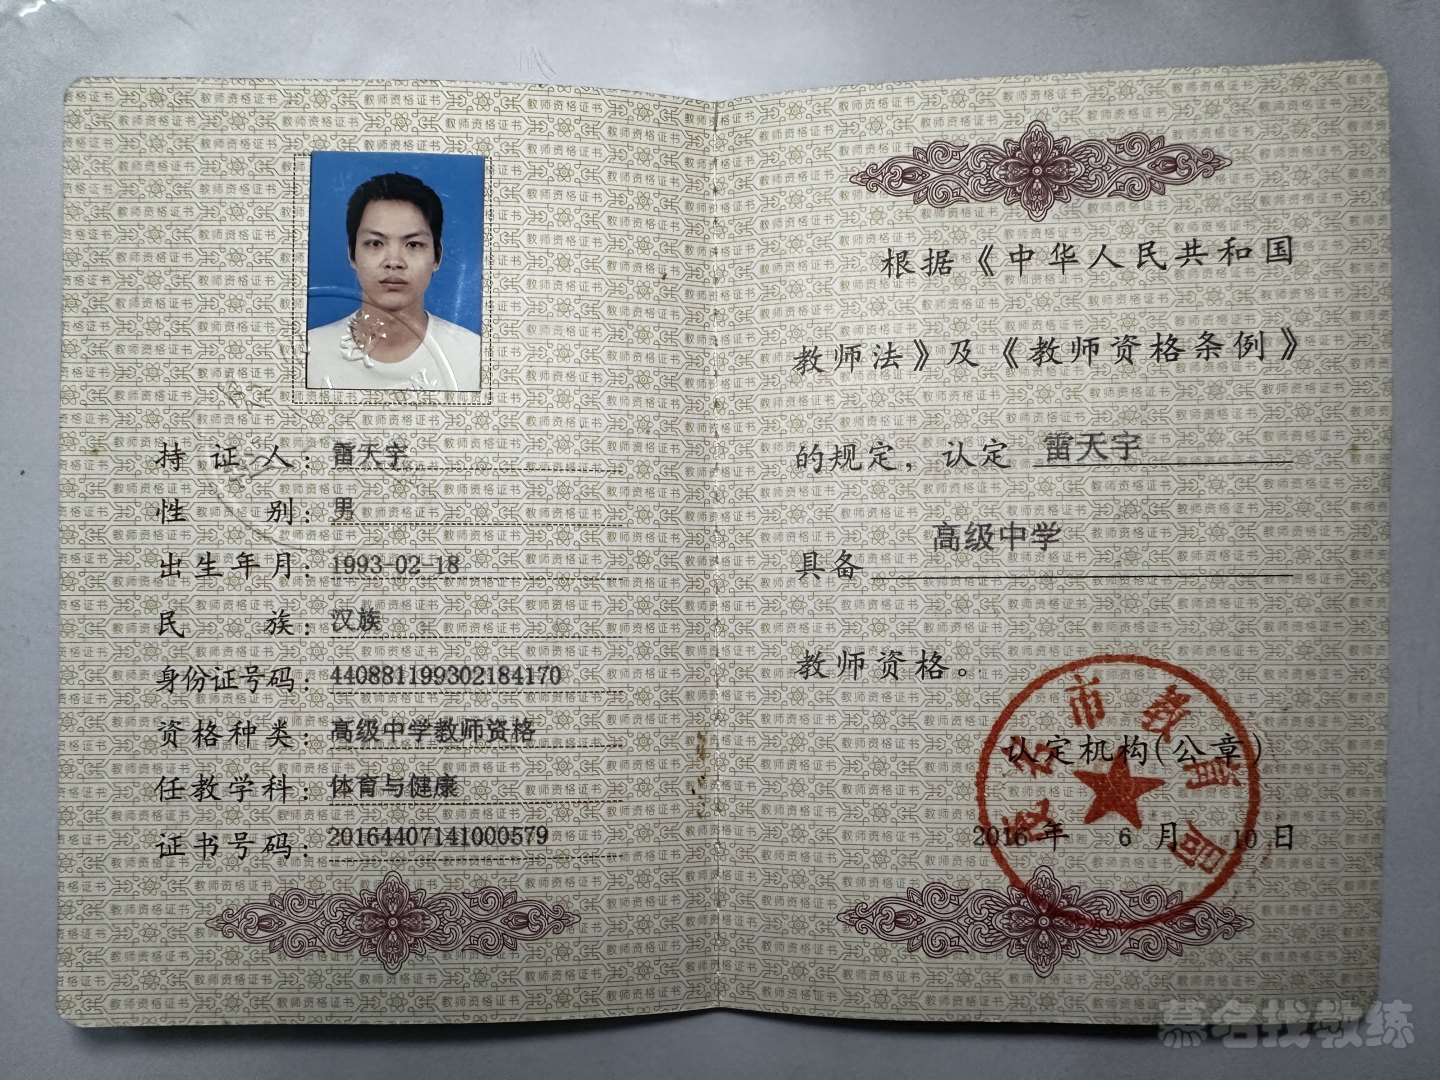 持证人：雷天宇
性别：男
出生年月：1993-02-18
民族：汉族
身份证号码：440881199302184170
资格种类：高级中学教师资格
任教学科：体育与健康
证书号码：20164407141000579
根据《中华人民共和国
教师法》及《教师资格条例》
的规定，认定 雷天宇
具备 高级中学
教师资格。
市教育局
认定机构(公章)
2016年 6月 10日
慕名找教练